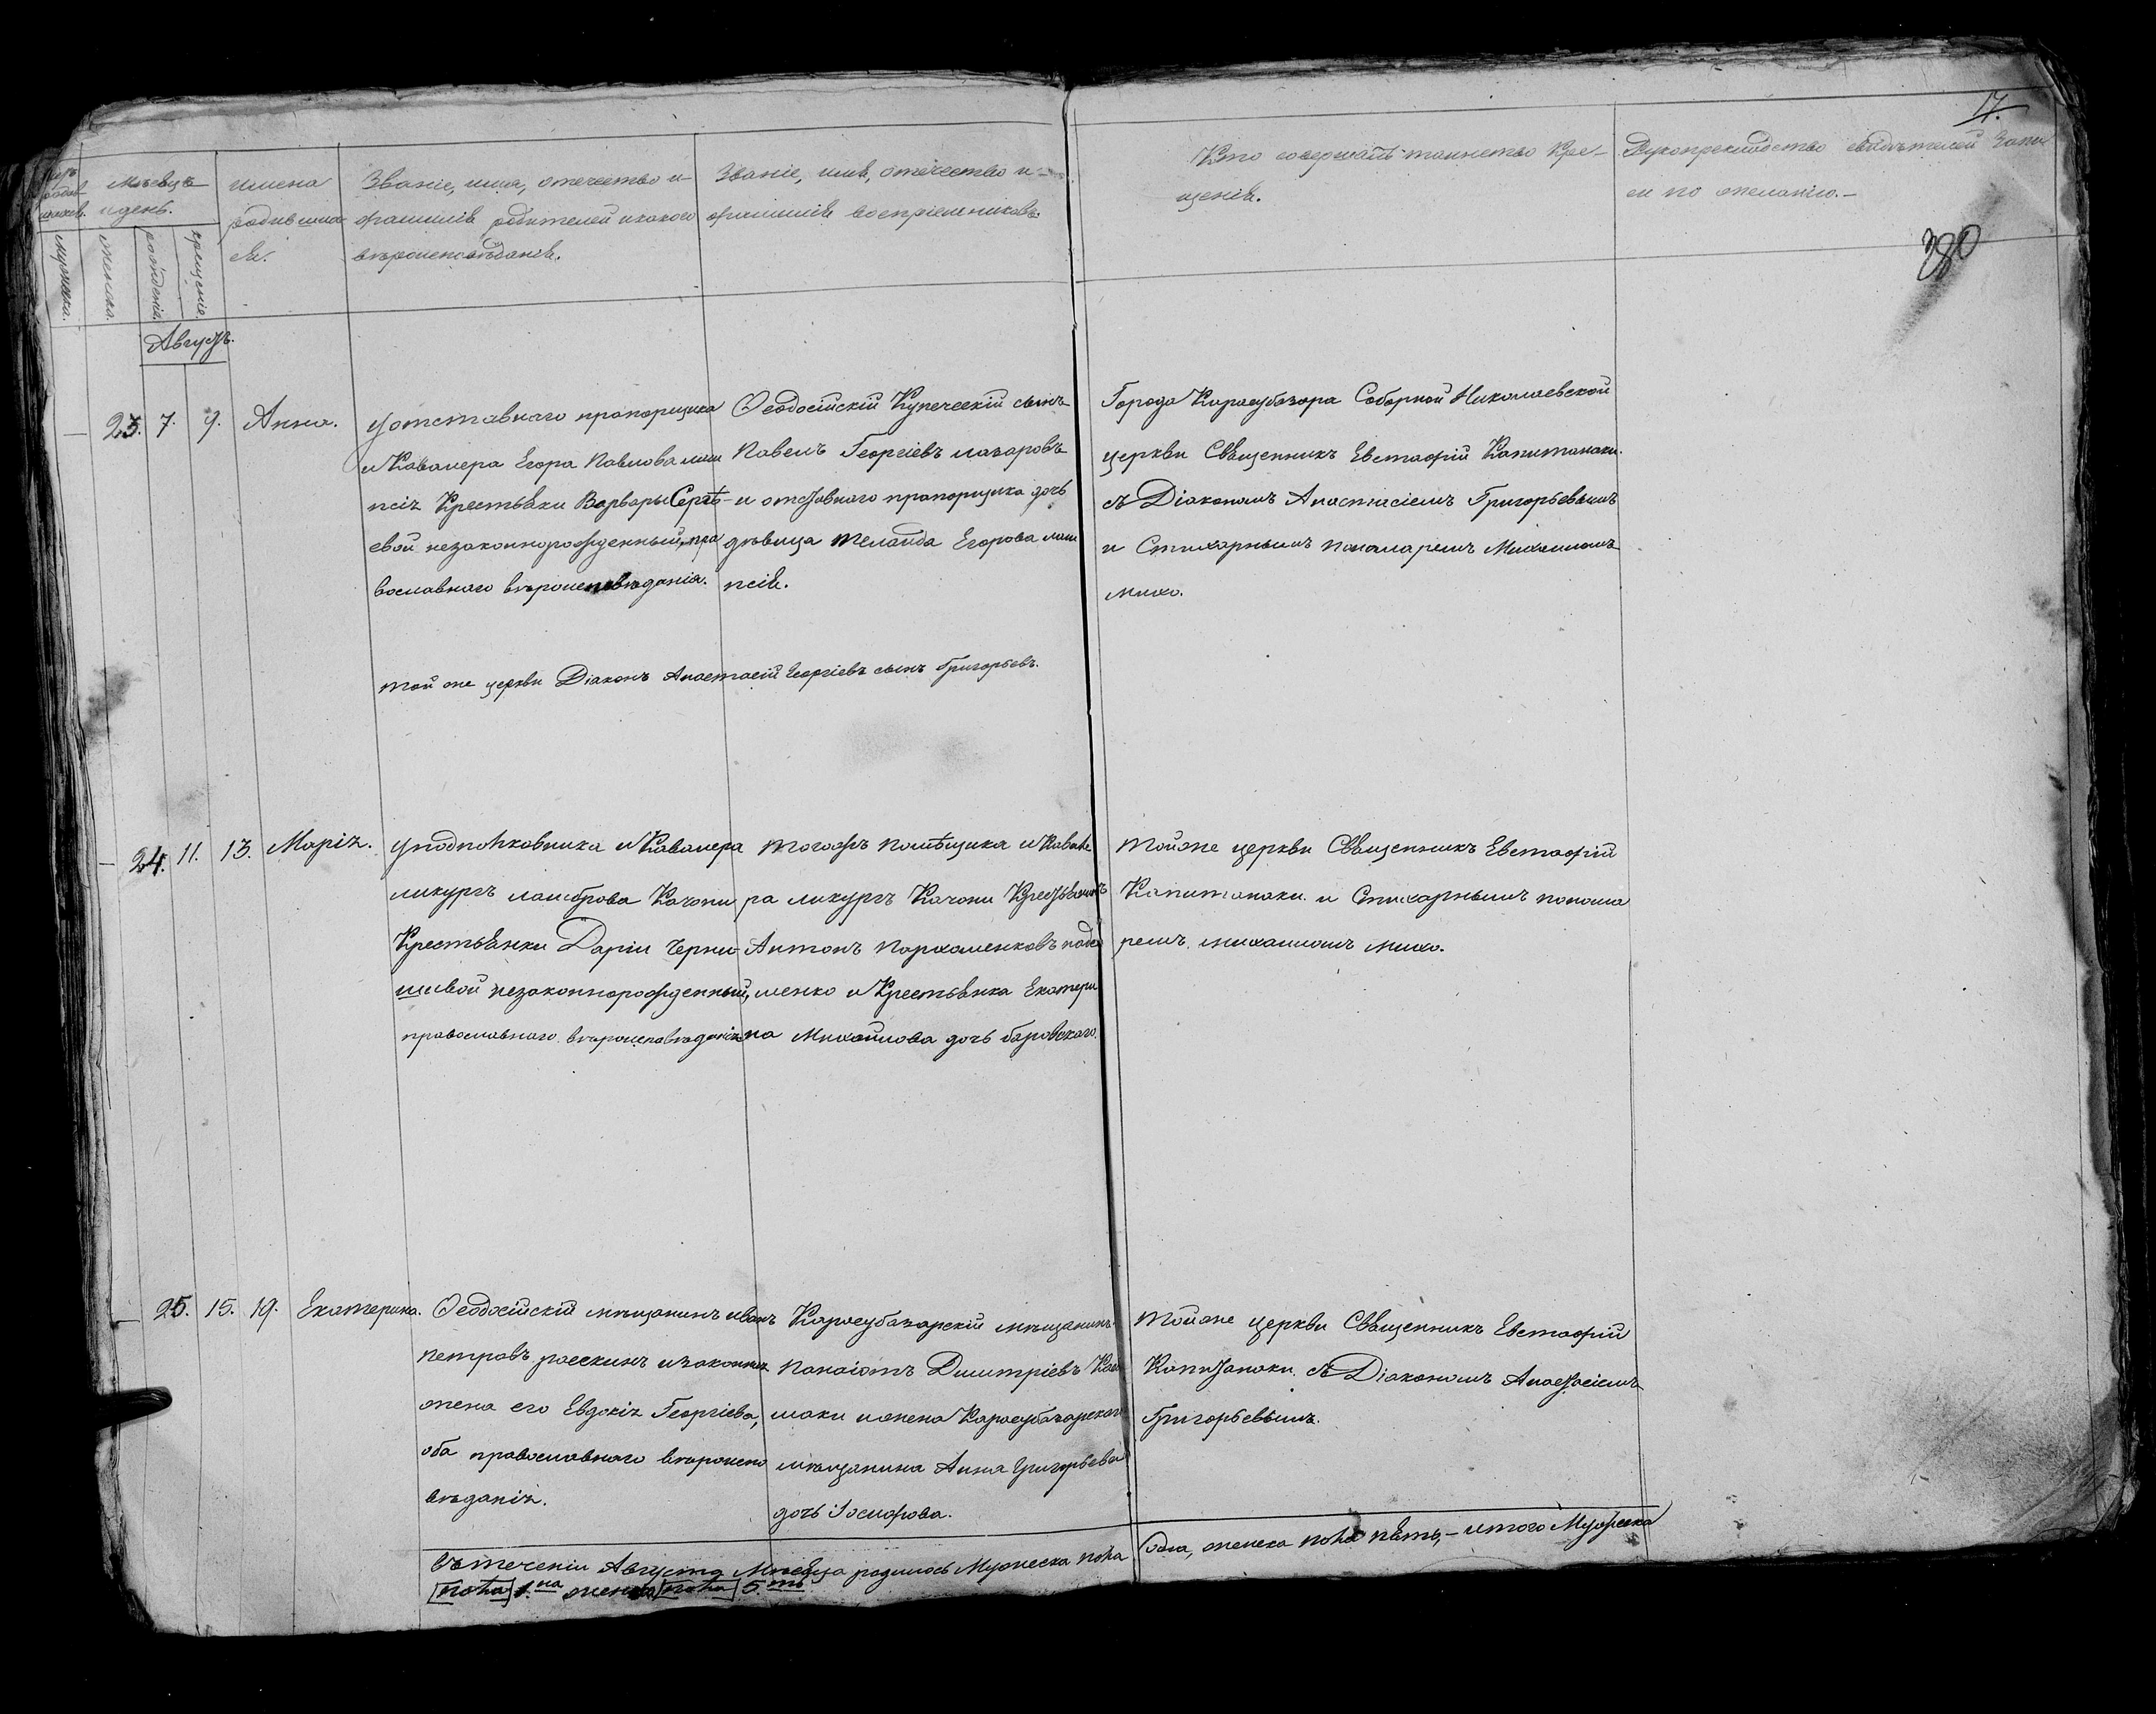 17.
380
мѣсяцъ
и день.
имена
родившиха
ся.
Званіе, имя, отечество и
фамилія родителей и какого
вѣроисповѣданія.
Званіе, имя, отечество и
фамилія воспріемниковъ.
Кто совершалъ таинство Кре-
щенія.
Рукоприкладство свидѣтелей запи
си по желанію.
мужска.
женска.
рожденія.
крещенія.
Августъ.
23. 7. 9. Анна.
у отставнаго прапорщика
и Кавалера Егора Павлова лам
псіz Крестьянки Варвары Сергѣ-
евой незаконнорожденный, пра
вославнаго вѣроисповѣданія.
Ѳеодосійскій Купеческій сынъ
Павелъ Георгіевъ лазаровъ
и отставнаго прапорщика дочь
дѣвица Меланія Егорова лам
псія.
Города Карасубазара Соборной Николаевской
церкви Священникъ Евстафій Капитанаки.
съ Діакономъ Анастасіемъ Григорьевымъ
и Стихарнымъ пономаремъ Михаиломъ
михо.
той же церкви Діаконъ Анастасій Георгіевъ сынъ Григорьевъ.
24. 11. 13. Марія.
у подполковника и Кавалера
ликургъ ламброва Качони
Крестьянки Даріи Черни-
шивой незаконнорожденный,
православнаго вѣроисповѣданія
тогожъ помѣщика и Кавале
ра ликургъ Качони Крестьянинъ
Антонъ пархоменковъ
менко и Крестьянка Екатери
на Михайлова дочь баровскаго.
тойже церкви Священникъ Евстафій
Капитанаки и Стихарнымъ понома
ремъ михаиломъ михо.
25. 15. 19. Екатерина.
Ѳеодосійскій мѣщанинъ иванъ
петровъ расскинъ и законная
жена его Евдокія Георгіева,
оба православнаго вѣроиспо
вѣданія.
Карасубазарскій мѣщанинъ
панаіотъ Дмитріевъ
маки и жена Карасубазарскаго
мѣщанина Анна Григорьева
дочь Іосифова.
тойже церкви Священникъ Евстафій
Капитанаки съ Діакономъ Анастасіемъ
Григорьевымъ.
Въ теченіи Августа Мѣсяца родилось Мужеска пола одна, женска пола пять, - итого Мужеска
пола 1.на женска пола 5.ть